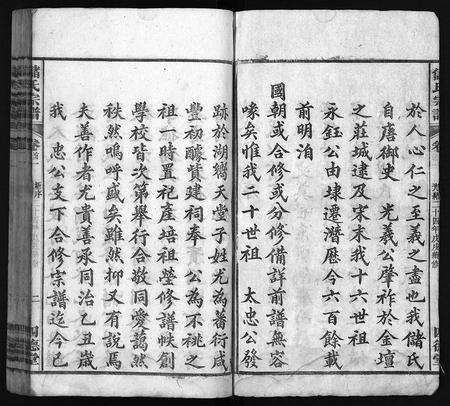 於人心仁之至義之盡也我儲氏
自唐御史　光羲公肇祚於金壇
之莊城逮及宋末我十六世祖
永鈺公由埭遷潛歷今六百餘載
前明洎
國朝或合修或分修備詳前譜無容
喙矣惟我二十世祖　太忠公發
儲氏宗譜
卷首
二
跡於湖嶲天堂子姓尤為蕃衍咸
豐初醵貲建祠奉　公為不祧之
祖一時置祀產培祖塋修譜帙創
學校皆次第舉行合敬同愛藹然
秩然嗚呼盛矣雖然抑又有說焉
夫善作者尤貴善承同治乙丑歲
我　忠公支下合修宗譜迄今已